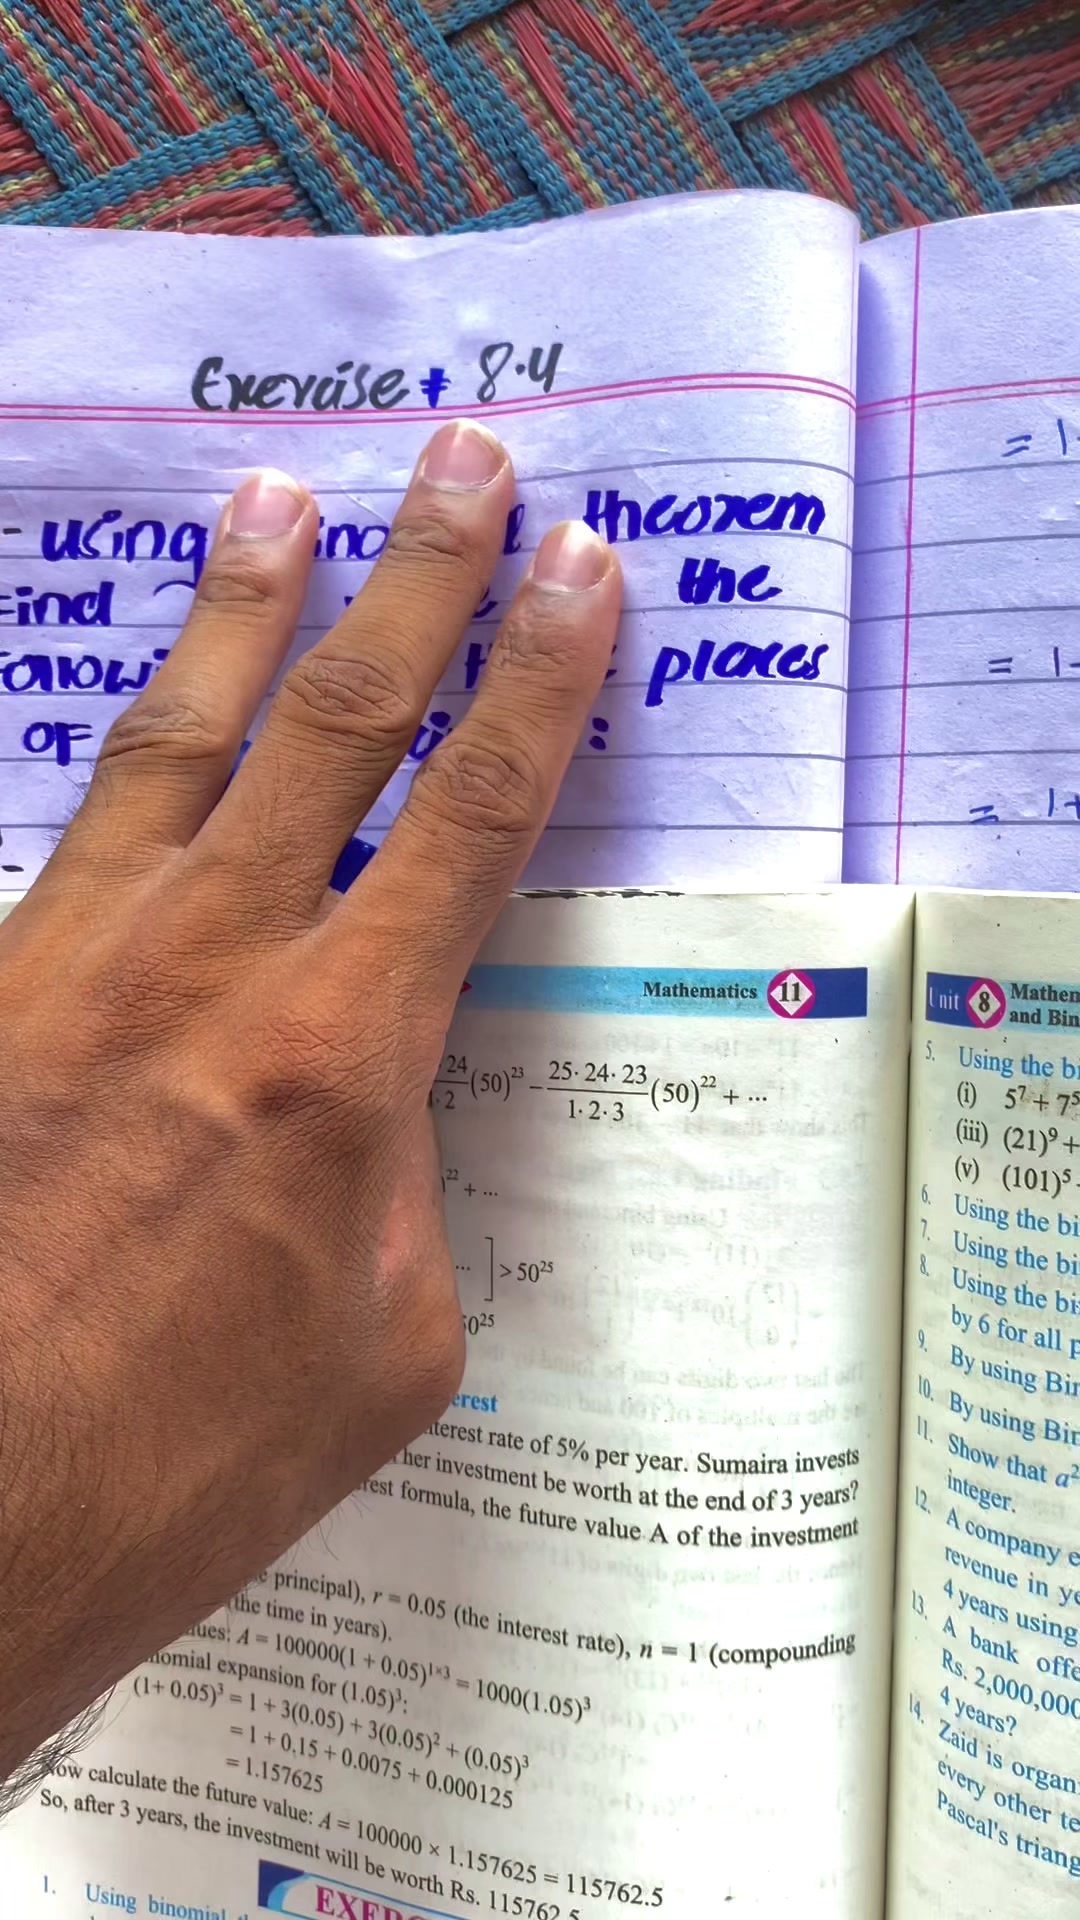 Exercise # 8.4
- using theorem
Find the
places
OF :
= 1
= 1-
= 1+
Mathematics 11
24/1·2 (50)²³ – 25·24·23/1·2·3 (50)²² + ...
²² + ...
... ] > 50²⁵
50²⁵
erest
interest rate of 5% per year. Sumaira invests
her investment be worth at the end of 3 years?
rest formula, the future value A of the investment
principal), r = 0.05 (the interest rate), n = 1 (compounding
(the time in years).
lues: A = 100000(1 + 0.05)¹ˣ³ = 1000(1.05)³
nomial expansion for (1.05)³:
(1+ 0.05)³ = 1 + 3(0.05) + 3(0.05)² + (0.05)³
= 1 + 0.15 + 0.0075 + 0.000125
= 1.157625
Now calculate the future value: A = 100000 × 1.157625 = 115762.5
So, after 3 years, the investment will be worth Rs. 115762.5
EXER
1. Using binomial
Unit 8 Mathem
and Bin
5. Using the bi
(i) 5⁷ + 7⁵
(iii) (21)⁹ +
(v) (101)⁵ -
6. Using the bi
7. Using the bi
8. Using the bi
by 6 for all p
9. By using Bir
10. By using Bir
11. Show that a²
integer.
12. A company e
revenue in ye
4 years using
13. A bank offe
Rs. 2,000,000
4 years?
14. Zaid is organ
every other te
Pascal's triang